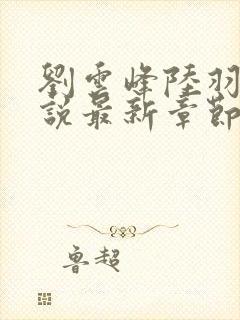 劉雲峰陸羽
說最新章節
魯超